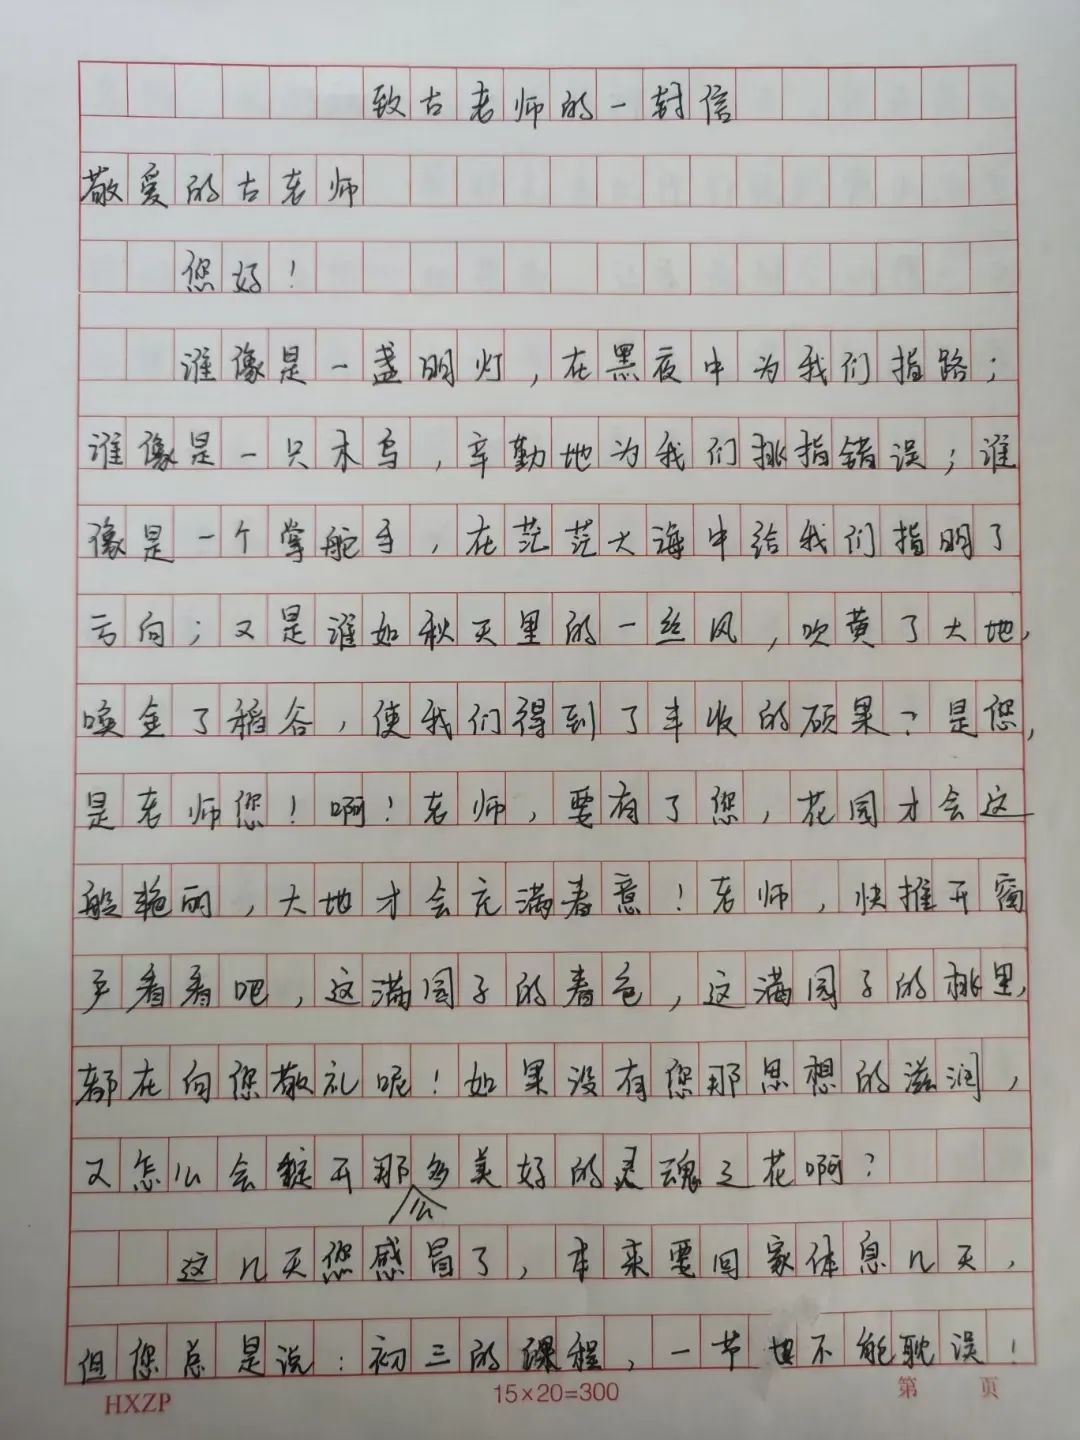 致古老师的一封信
敬爱的古老师
您好！
谁像是一盏明灯，在黑夜中为我们指路；
谁像是一只木鸟，辛勤地为我们挑指错误；谁
像是一个掌舵手，在茫茫大海中给我们指明了
方向；又是谁如秋天里的一丝风，吹黄了大地，
唤金了稻谷，使我们得到了丰收的硕果？是您，
是老师您！啊！老师，要有了您，花园才会这
般艳丽，大地才会充满春意！老师，快推开窗
户看看吧，这满园子的春色，这满园子的桃里，
都在向您敬礼呢！如果没有您那思想的滋润，
又怎么会绽开那么多美好的灵魂之花啊？
这几天您感冒了，本来要回家休息几天，
但您总是说：初三的课程，一节也不能耽误！
HXZP
15×20=300
第 页